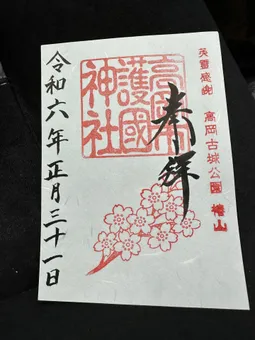 英霊感謝 高岡古城公園 椿山
奉拝
高岡
護國
神社
令和六年正月三十一日